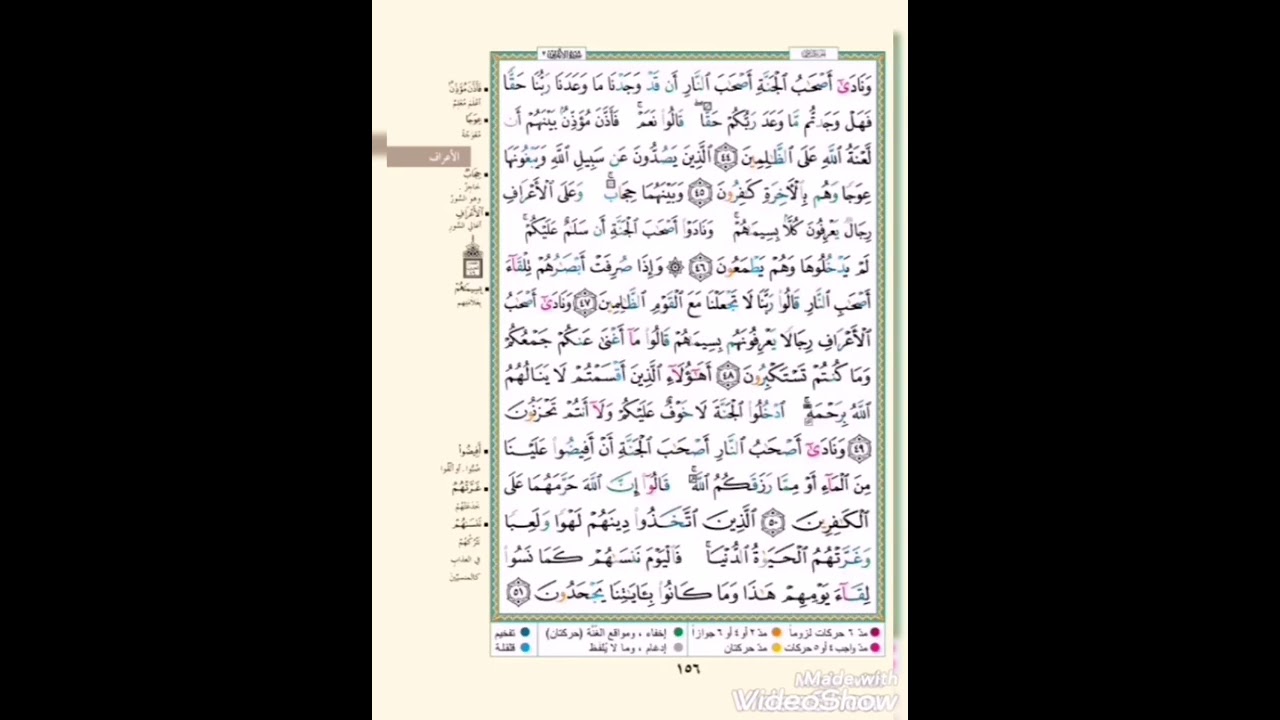 سورة الأعراف ٧
وَنَادَىٰٓ أَصۡحَٰبُ ٱلۡجَنَّةِ أَصۡحَٰبَ ٱلنَّارِ أَن قَدۡ وَجَدۡنَا مَا وَعَدَنَا رَبُّنَا حَقّٗا
فَهَلۡ وَجَدتُّم مَّا وَعَدَ رَبُّكُمۡ حَقّٗاۖ قَالُواْ نَعَمۡۚ فَأَذَّنَ مُؤَذِّنُۢ بَيۡنَهُمۡ أَن
لَّعۡنَةُ ٱللَّهِ عَلَى ٱلظَّٰلِمِينَ ٤٤ ٱلَّذِينَ يَصُدُّونَ عَن سَبِيلِ ٱللَّهِ وَيَبۡغُونَهَا
عِوَجٗا وَهُم بِٱلۡأٓخِرَةِ كَٰفِرُونَ ٤٥ وَبَيۡنَهُمَا حِجَابٞۚ وَعَلَى ٱلۡأَعۡرَافِ
رِجَالٞ يَعۡرِفُونَ كُلَّۢا بِسِيمَىٰهُمۡۚ وَنَادَوۡاْ أَصۡحَٰبَ ٱلۡجَنَّةِ أَن سَلَٰمٌ عَلَيۡكُمۡۚ
لَمۡ يَدۡخُلُوهَا وَهُمۡ يَطۡمَعُونَ ٤٦ ۞ وَإِذَا صُرِفَتۡ أَبۡصَٰرُهُمۡ تِلۡقَآءَ
أَصۡحَٰبِ ٱلنَّارِ قَالُواْ رَبَّنَا لَا تَجۡعَلۡنَا مَعَ ٱلۡقَوۡمِ ٱلظَّٰلِمِينَ ٤٧ وَنَادَىٰٓ أَصۡحَٰبُ
ٱلۡأَعۡرَافِ رِجَالٗا يَعۡرِفُونَهُم بِسِيمَىٰهُمۡ قَالُواْ مَآ أَغۡنَىٰ عَنكُمۡ جَمۡعُكُمۡ
وَمَا كُنتُمۡ تَسۡتَكۡبِرُونَ ٤٨ أَهَٰٓؤُلَآءِ ٱلَّذِينَ أَقۡسَمۡتُمۡ لَا يَنَالُهُمُ
ٱللَّهُ بِرَحۡمَةٍۚ ٱدۡخُلُواْ ٱلۡجَنَّةَ لَا خَوۡفٌ عَلَيۡكُمۡ وَلَآ أَنتُمۡ تَحۡزَنُونَ
٤٩ وَنَادَىٰٓ أَصۡحَٰبُ ٱلنَّارِ أَصۡحَٰبَ ٱلۡجَنَّةِ أَنۡ أَفِيضُواْ عَلَيۡنَا
مِنَ ٱلۡمَآءِ أَوۡ مِمَّا رَزَقَكُمُ ٱللَّهُۚ قَالُوٓاْ إِنَّ ٱللَّهَ حَرَّمَهُمَا عَلَى
ٱلۡكَٰفِرِينَ ٥٠ ٱلَّذِينَ ٱتَّخَذُواْ دِينَهُمۡ لَهۡوٗا وَلَعِبٗا
وَغَرَّتۡهُمُ ٱلۡحَيَوٰةُ ٱلدُّنۡيَاۚ فَٱلۡيَوۡمَ نَنسَىٰهُمۡ كَمَا نَسُواْ
لِقَآءَ يَوۡمِهِمۡ هَٰذَا وَمَا كَانُواْ بِـَٔايَٰتِنَا يَجۡحَدُونَ ٥١
فَأَذَّنَ مُؤَذِّنٌ
أعلم معلم
عِوَجًا
معوجة
الأعراف
حِجَابٌ
حاجز
وهو السور
الأَعْرَافِ
أعالي السور
بِسِيمَاهُمْ
بعلامتهم
أَفِيضُوا
صبوا. أو ألقوا
غَرَّتْهُمُ
خدعتهم
نَنسَاهُمْ
نتركهم
في العذاب
كالمنسيين
مدّ ٦ حركات لزوماً
مدّ ٢ أو ٤ أو ٦ جوازاً
إخفاء ، ومواقع الغُنَّة (حركتان)
تفخيم
مدّ واجب ٤ أو ٥ حركات
مدّ حركتان
إدغام ، وما لا يُلفَظ
قلقلة
١٥٦
Made with
VideoShow